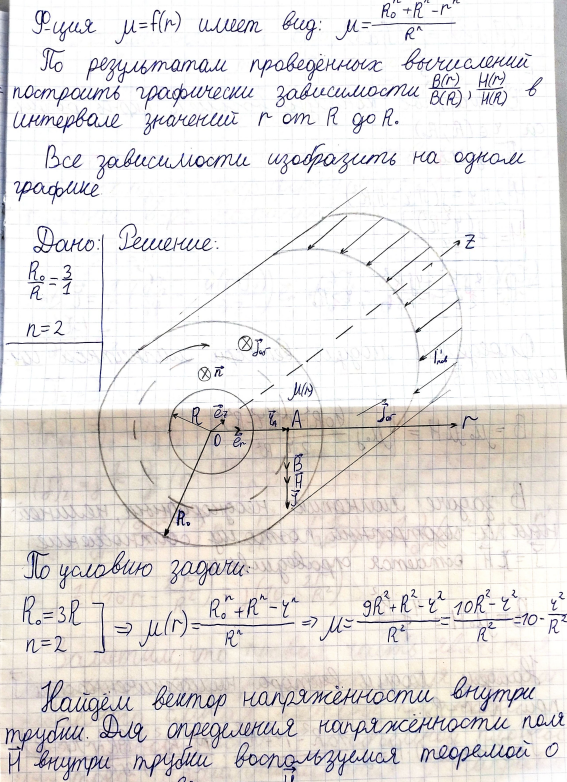 Ф-ция μ=f(r) имеет вид: μ=(R₀ⁿ+Rⁿ-rⁿ)/Rⁿ
По результатам проведённых вычислений
построить графически зависимости B(r)/B(R), H(r)/H(R) в
интервале значений r от R до R₀
Все зависимости изобразить на одном
графике
Дано: Решение:
R₀/R=3/1
n=2
z
j⃗
n⃗
μ(r)
R
e⃗
A
r
O
e⃗r
B⃗
H⃗
J⃗
R₀
По условию задачи:
R₀=3R
n=2 ] ⇒ μ(r)=(R₀ⁿ+Rⁿ-rⁿ)/Rⁿ ⇒ μ=(9R²+R²-r²)/R²=(10R²-r²)/R²=10-r²/R²
Найдём вектор напряжённости внутри
трубки. Для определения напряжённости поля
H⃗ внутри трубки воспользуемся теоремой о